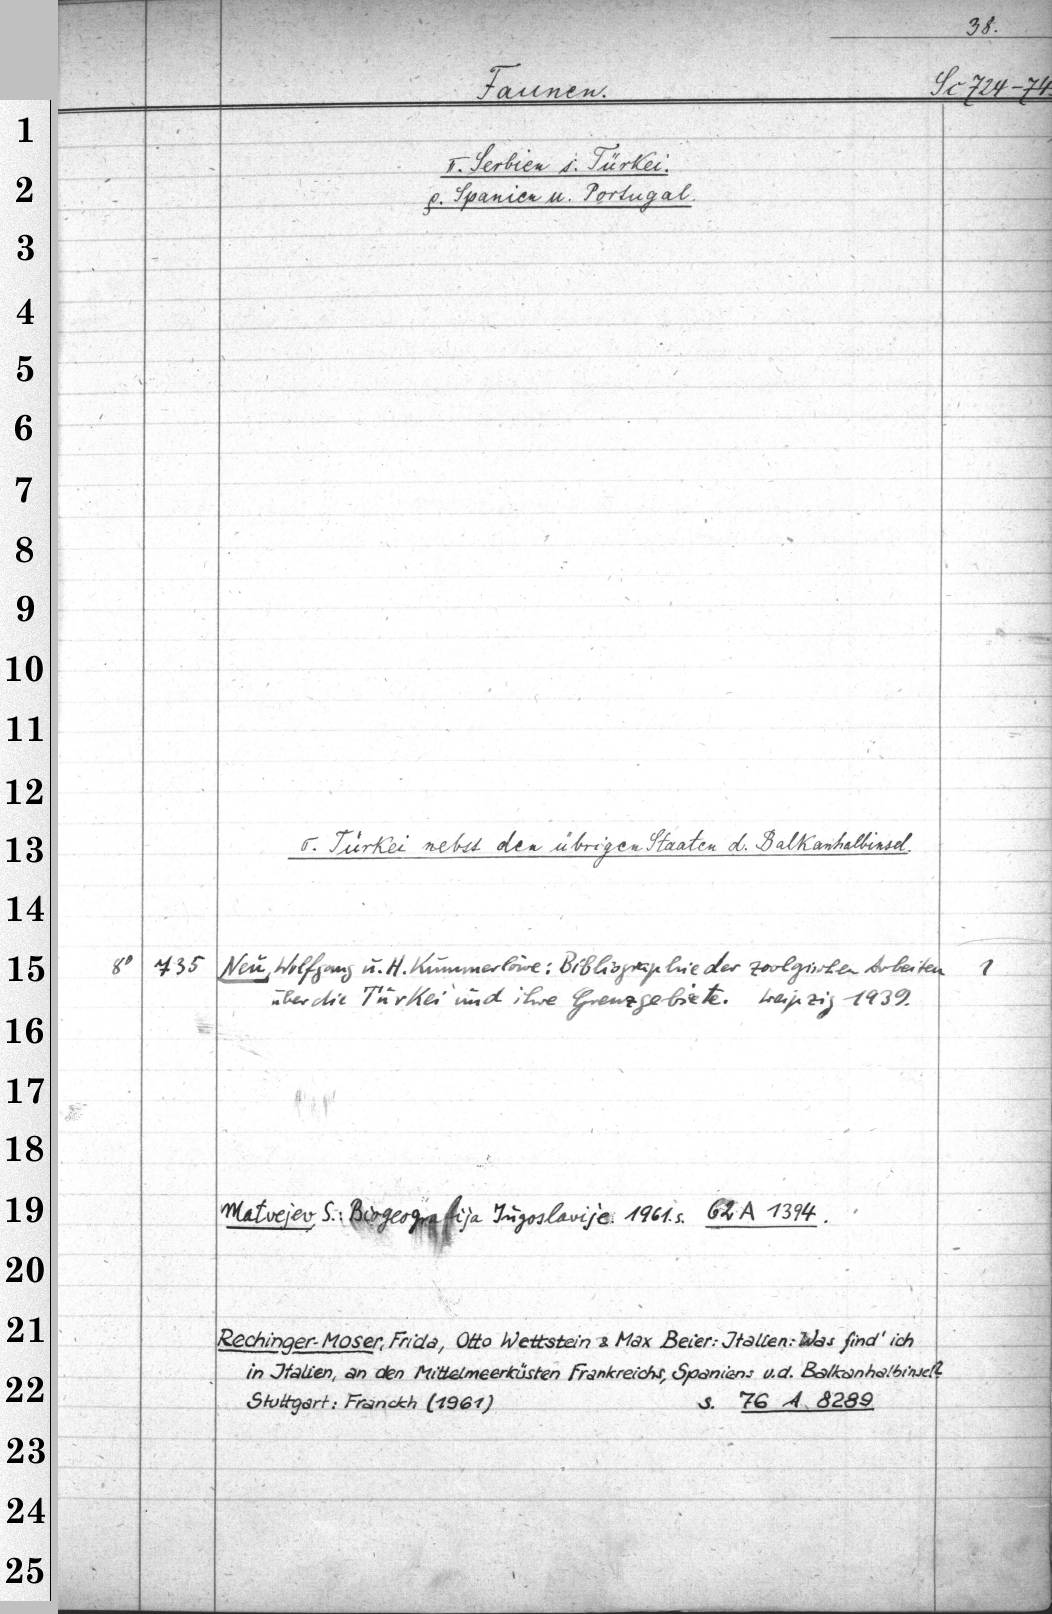 38.
Faunen.
Sc 724-74
1
π. Serbien s. Türkei.
2
ρ. Spanien u. Portugal.
3
4
5
6
7
8
9
10
11
12
13 σ. Türkei nebst den übrigen Staaten d. Balkanhalbinsel.
14
15 8° 735 Neu, Wolfgang u. H. Kummerlöwe: Bibliographie der zoolgischen Arbeiten 1
über die Türkei und ihre Grenzgebiete. Leipzig 1939.
16
17
18
19 Matvejev, S.: Biogeografija Jugoslavije. 1961. s. 62 A 1394.
20
21 Rechinger-Moser, Frida, Otto Wettstein & Max Beier: Italien: Was find' ich
in Italien, an den Mittelmeerküsten Frankreichs, Spaniens u.d. Balkanhalbinsel?
22 Stuttgart: Franckh (1961) s. 76 A 8289
23
24
25